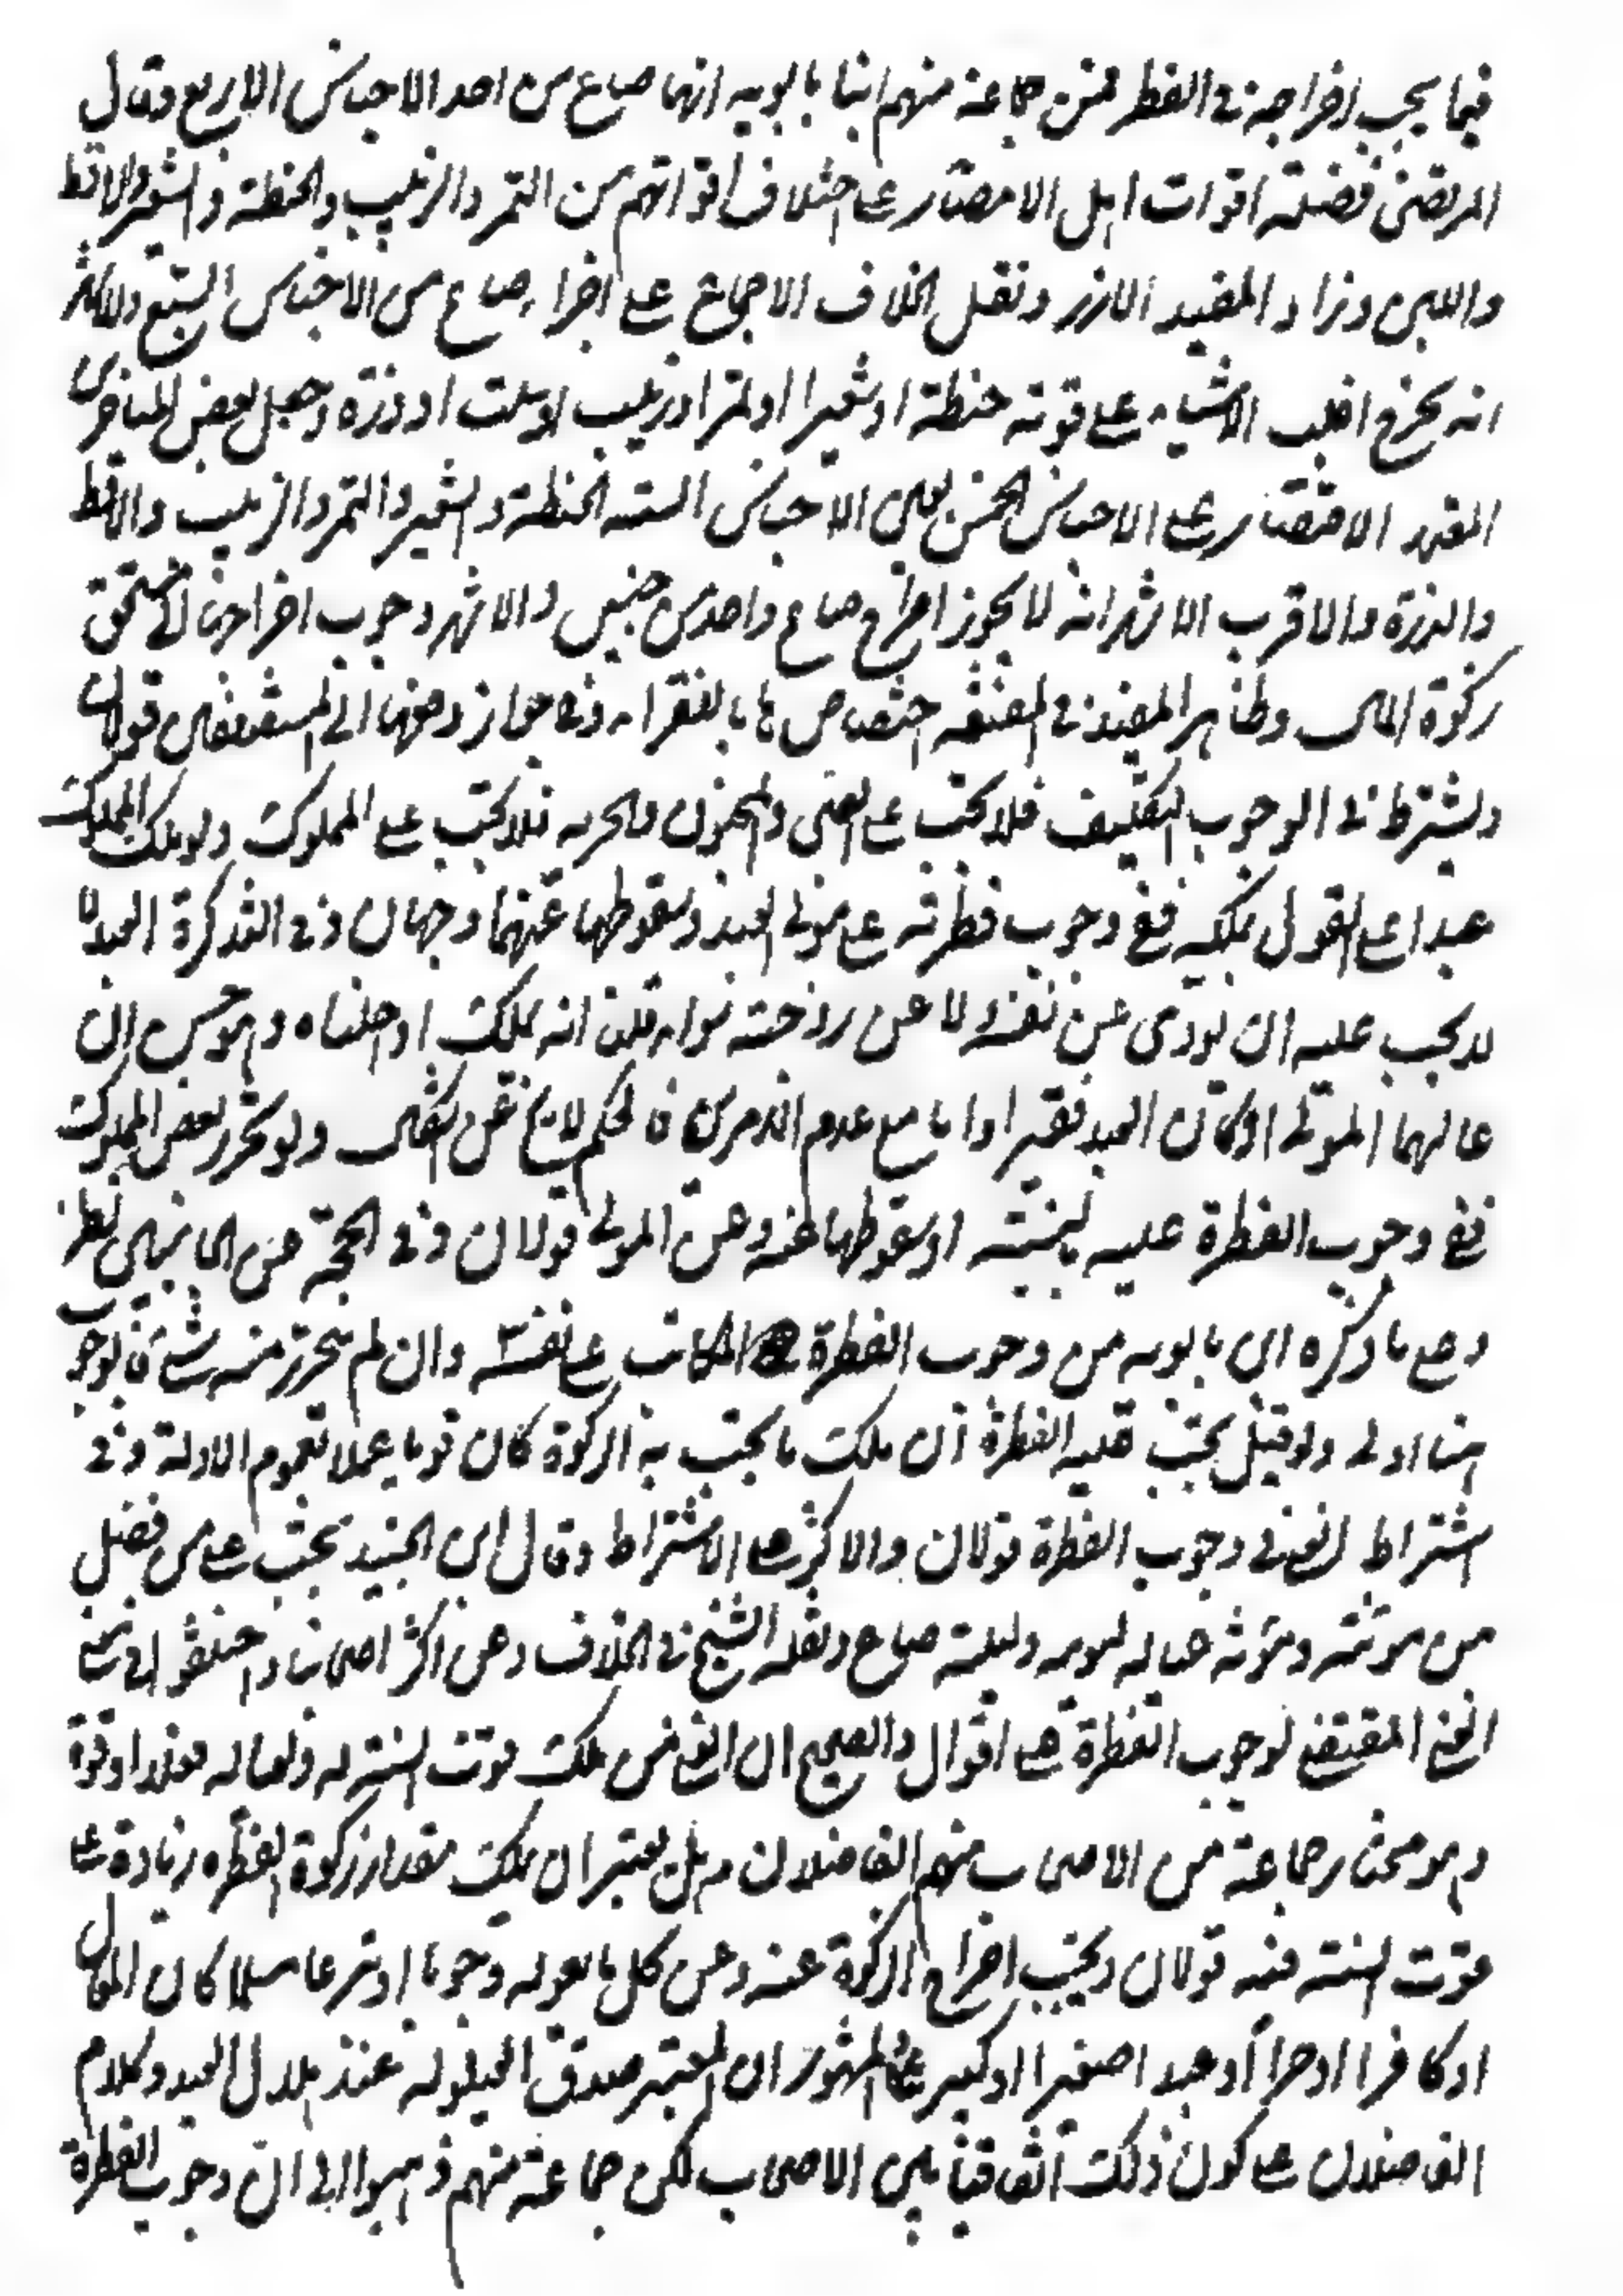 فيما يجب اخراجه في الفطر فعن جماعة منهم ابنا بابويه انها صاع من احد الاجناس الاربع وقال
المرتضى فضلة اقوات اهل الامصار على اختلاف اقواتهم من التمر والزبيب والحنطة والشعير والاقط
واللبن وزاد المفيد الارز ونقل الخلاف الاجماع على اجزاء صاع من الاجناس السبع
انه يخرج اغلب الاشياء على قوته حنطة او شعيرا او تمرا او زبيب او سلت او ذرة وجعل بعض المتاخرين
المعتبر الاقتصار على الاجناس الخمس يعنى الاجناس الستة الحنطة والشعير والتمر والزبيب والاقط
والذرة والاقرب الاشهر انه لا يجوز اخراج صاع واحد من جنسين والاشهر وجوب اخراجها الى مستحق
زكوة المال وظاهر المفيد في المقنعة اختصاصها بالفقراء وفي جواز دفعها الى المستضعفين قولان
ويشترط في الوجوب التكليف فلا تجب على الصبى والمجنون والحرية فلا تجب على المملوك ولو ملك المملوك
عبدا على القول بملكه ففي وجوب فطرته على مولى العبد وسقوطها عنهما وجهان وفي التذكرة العبد لا
يجب عليه ان يؤدى عن نفسه ولا عن زوجته سواء قلنا انه يملك او احلناه وهو حسن ان
عالهما المولى او كان العبد فقيرا واما مع عدم الامرين فالحكم لا يخ عن اشكال ولو تحرر بعض المملوك
ففي وجوب الفطرة عليه بالنسبة او سقوطها عنه وعن المولى قولان وفي الحجة من الجانبين نظر
وعلى ما ذكره ابن بابويه من وجوب الفطرة على المكاتب على نفسه وان لم يتحرر منه شئ فالوجوب
هنا اولى ولو قيل تجب عليه الفطرة ان ملك ما تجب به الزكوة كان قويا عملا بعموم الادلة وفي
اشتراط الغنى في وجوب الفطرة قولان والاكثر على الاشتراط وقال ابن الجنيد تجب على من فضل
من مؤنته ومؤنة عياله ليومه وليلته صاع ونقله الشيخ في الخلاف وعن اكثر اصحابنا واختلفوا في معنى
الغنى المقتضى لوجوب الفطرة على اقوال والصحيح ان الغنى من ملك قوت السنة له ولعياله فعلا او قوة
وهو مختار جماعة من الاصحاب منهم الفاضلان وهل يعتبر ان يملك مقدار زكوة الفطرة زيادة على
قوت السنة فيه قولان ويجب اخراج الزكوة عنه وعن كل ما يعوله وجوبا او تبرعا مسلما كان المعال
او كافرا او حرا او عبدا صغيرا او كبيرا على المشهور ان المعتبر صدق العيلولة عند هلال العيد وكلام
الفاضلان على كون ذلك اتفاقيا بين الاصحاب لكن جماعة منهم ذهبوا الى ان وجوب الفطرة